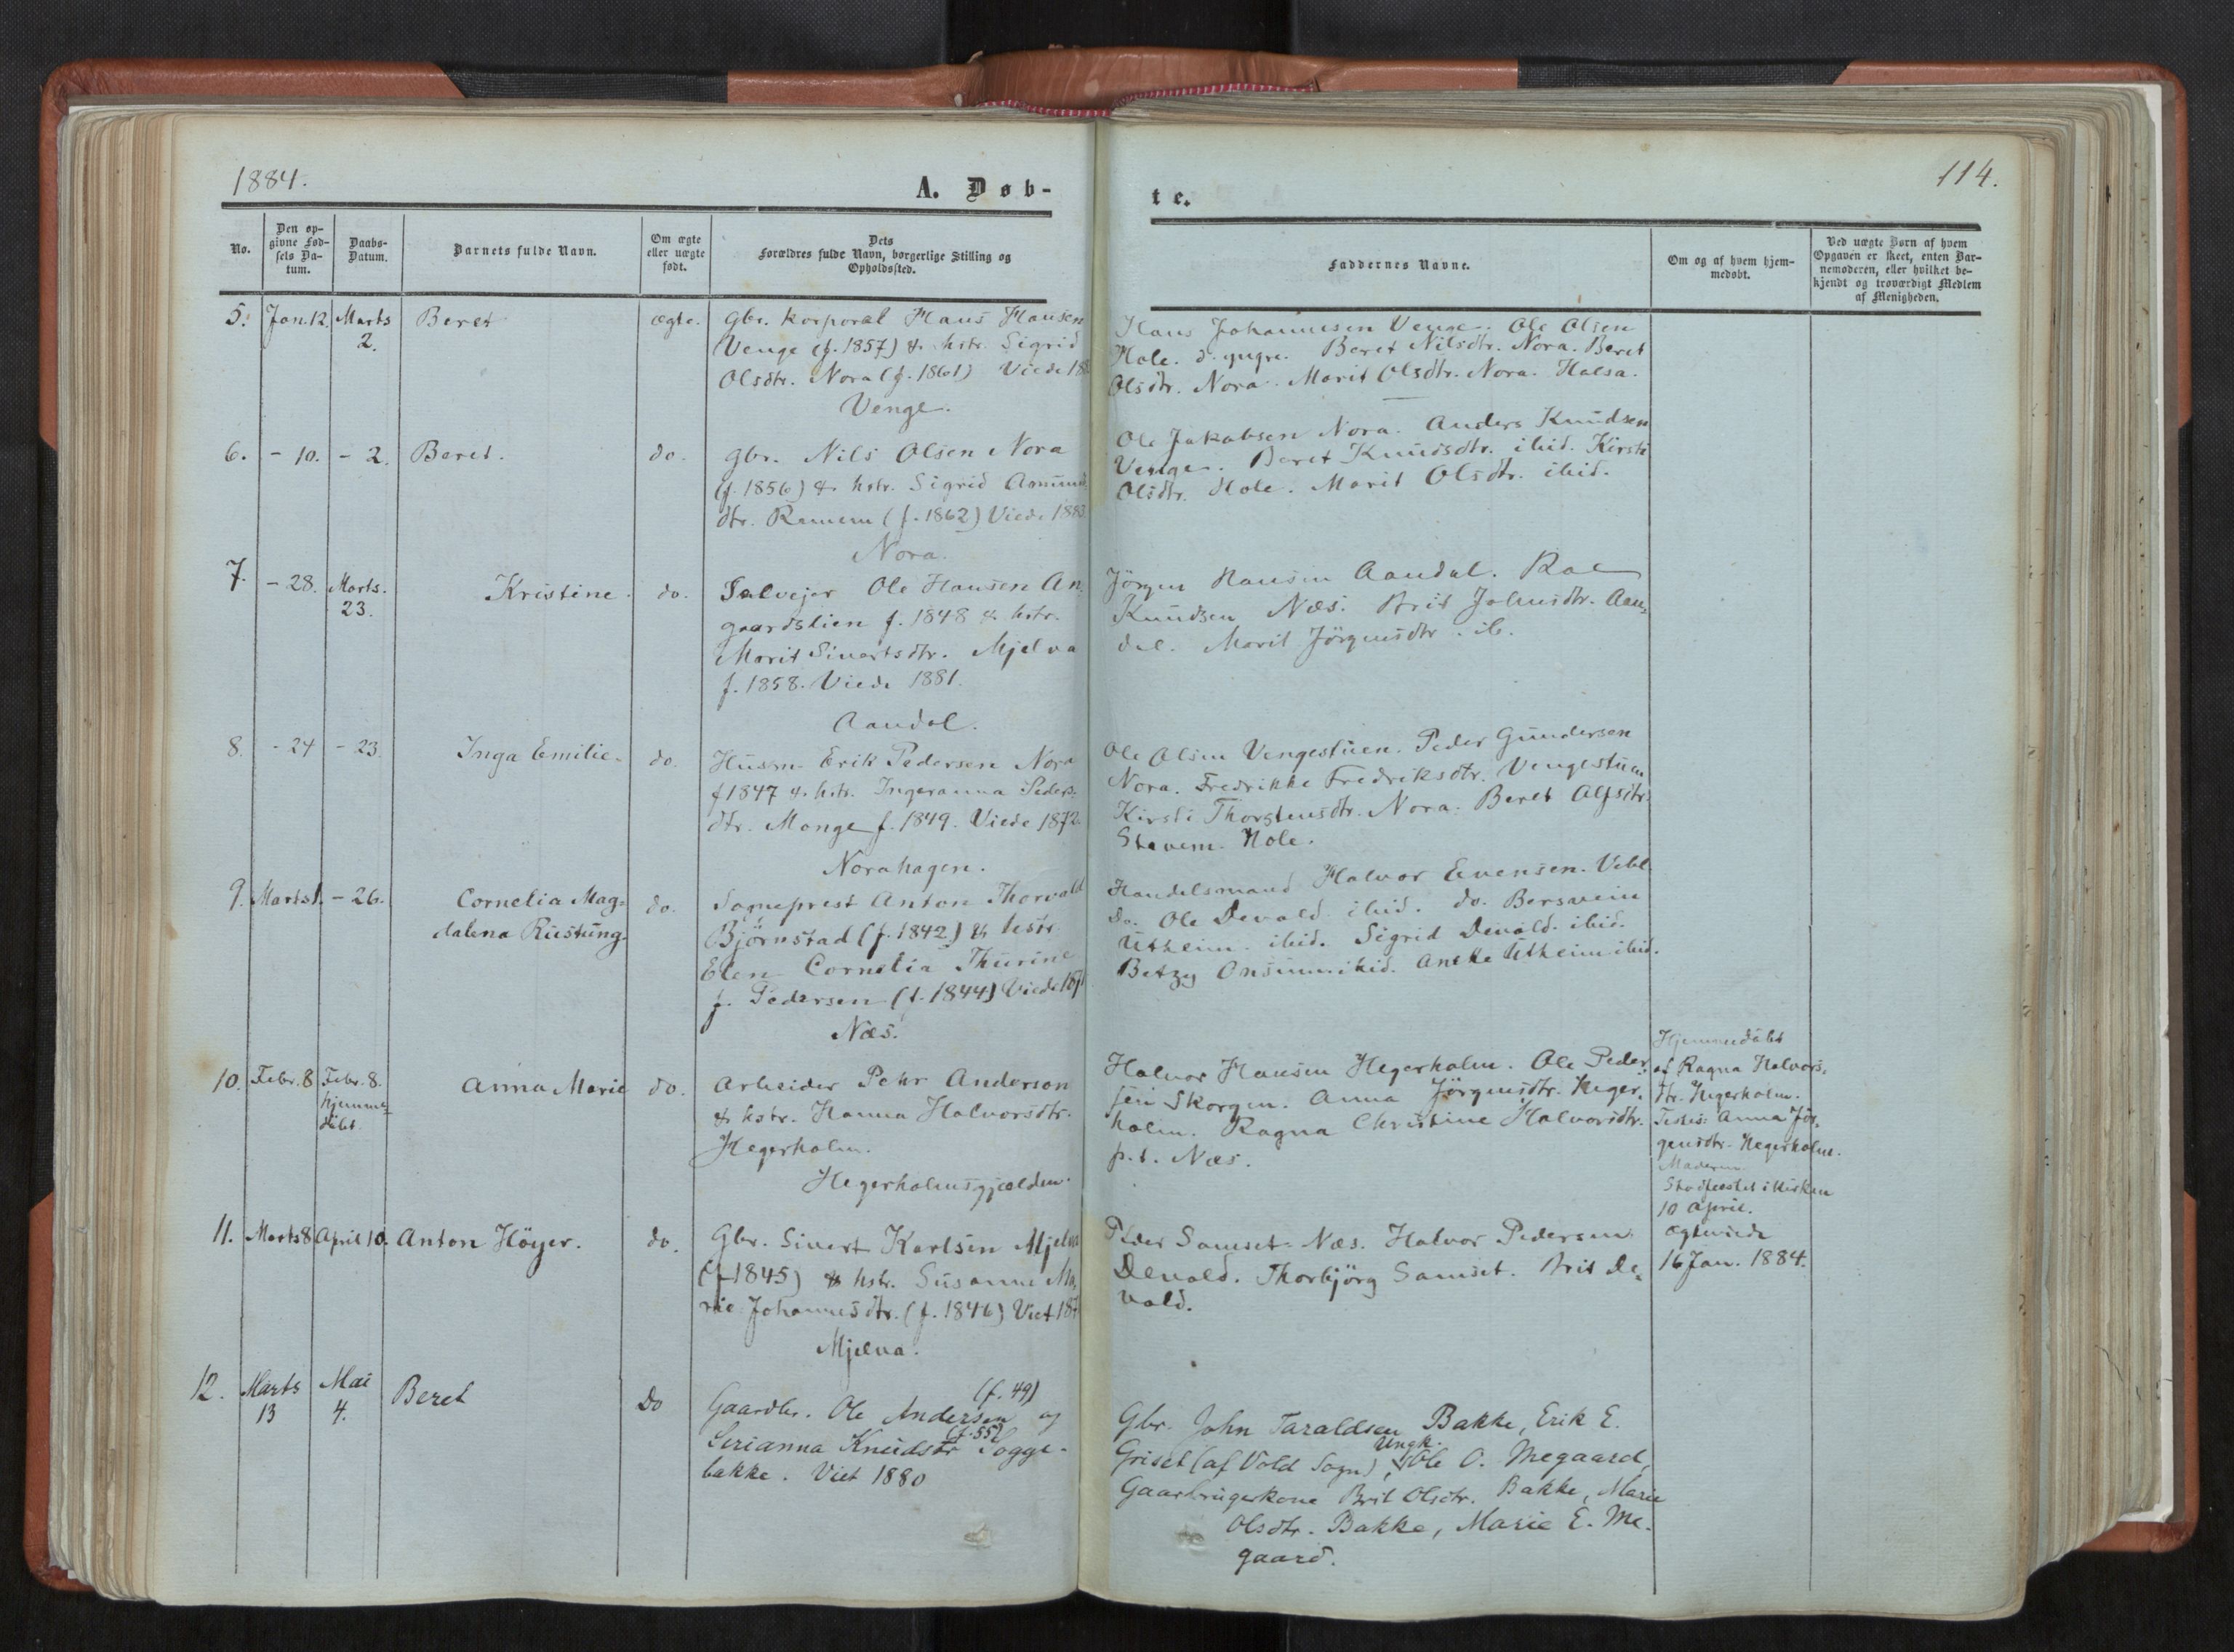 1884.
A. Døb-
No.
Den op-
givne Fød-
sels Da-
tum.
Daabs-
Datum.
Barnets fulde Navn.
Om ægte
eller uægte
født.
Dets
Forældres fulde Navn, borgerlige Stilling og
Opholdssted.
5. Jan. 12. Marts
2.
Beret
ægte.
Gbr. Korporal Hans Hansen
Venge (f. 1857) & hstr. Sigrid
Olsdtr. Nora (f. 1861) Viede 188
Venge.
6. - 10. - 2. Beret.
do.
Gbr. Nils Olsen Nora
(f. 1856) & hstr. Sigrid Amund
dtr. (f. 1862) Viede 1883
Nora.
7. - 28. Marts.
23.
Kristine.
do.
Selvejer Ole Hansen An-
gaardslien f. 1848 & hstr.
Marit Sivertsdtr. Mjelva
f. 1858. Viede 1881.
Aandal.
8. - 24 - 23.
Inga Emilie.
do.
Husm. Erik Pedersen Nora
f 1847 & hstr. Ingeranna Peders-
dtr. Monge f. 1849. Viede 1872.
Norahagen.
9. Marts 1. - 26.
Cornelia Mag-
dalena Rustung.
do.
Sogneprest Anton Thorvald
Bjørnstad (f. 1842) & hstr.
Elen Cornelia Thurine
f. Pedersen (f. 1844) Viede 187
Næs.
10. Febr. 8 Febr. 8.
hjemme-
døbt.
Anna Marie
do.
Arbeider Pehr Anderson
& hstr. Hanna Halvorsdtr.
Hegerholm.
Hegerholmsgjælden.
11. Marts 8 April 10. Anton Höyer.
do.
Gbr. Sivert Karlsen Mjelva
(f. 1845) & hstr. Susanne Ma-
rie Johannesdtr. (f. 1846) Viet 187
Mjelva.
12. Marts
13
Mai
4.
Beret
Do
(f. 49)
Gaardbr. Ole Andersen og
(f. 55)
Serianna Knudsdtr Sogge-
bakke. Viet 1880
114.
te.
Faddernes Navne.
Om og af hvem hjem-
medøbt.
Ved uægte Børn af hvem
Opgaven er skeet, enten Bar-
nemoderen, eller hvilket be-
kjendt og troværdigt Medlem
af Menigheden.
Hans Johannesen Venge. Ole Olsen
Hole. d. yngre. Beret Nilsdtr. Nora. Beret
Olsdtr. Nora. Marit Olsdtr. Nora. Halsa.
Ole Jakobsen Nora. Anders Knudsen
Venge. Beret Knudsdtr. ibid. Kirsti
Olsdtr. Hole. Marit Olsdtr. ibid.
Jörgen Hansen Aandal.
Knudsen Næs. Brit Johnsdtr. Aan-
dal. Marit Jörgensdtr. ib.
Ole Olsen Vengestuen. Peder Gundersen
Nora. Fredrikke Fredriksdtr. Vengestuen
Kirsti Thorstensdtr. Nora. Beret Alfsdtr.
Stavem. Hole.
Handelsmand Halvor Evensen. Vebl.
Do. Ole Devold ibid. do. Bersvein
Utheim. ibid. Sigrid Devold. ibid.
Betzy Onsum. ibid. Anske Utheim ibid.
Halvor Hansen Hegerholm. Ole Peder-
sen Skorgen. Anna Jörgensdtr. Heger-
holm. Ragna Christine Halvorsdtr.
p.t. Næs.
Hjemmedøbt
af Ragna Halvors-
dtr. Hegerholm.
Testes: Anna Jör-
gensdtr. Hegerholm.
Moderen.
Stadfæstet i Kirken
10 April.
Ægteviede
16 Jan. 1884.
Peder Samset. Næs. Halvor Pedersen
Devold. Thorbjörg Samset. Brit De-
vold.
Gbr. John Taraldsen Bakke, Erik E.
Griset (af Vold Sogn), Ungk. Ole O. Megaard,
Gaarbrugerkone Brit Olsdtr. Bakke, Marie
Olsdtr. Bakke, Marie E. Me-
gaard.